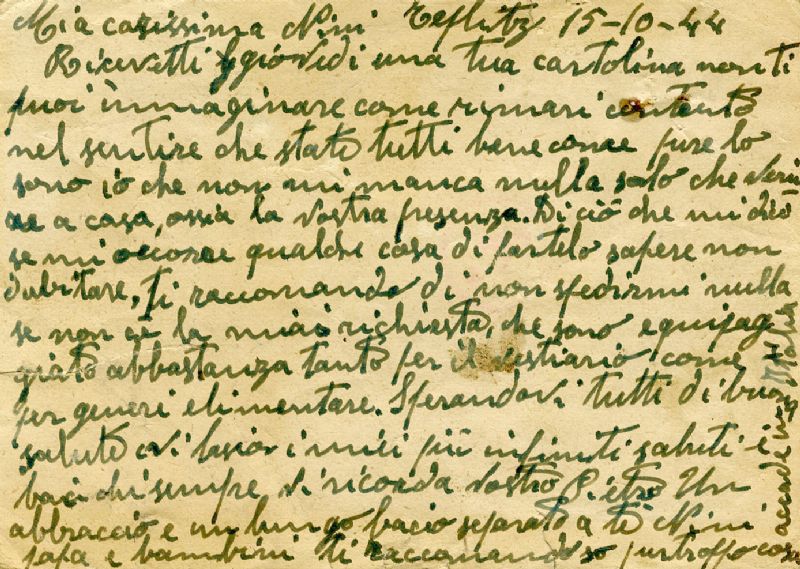 Mia carissima Nini Teflitz 15-10-44
Ricevetti giovedi una tua cartolina non ti
puoi immaginare come rimasi contento
nel sentire che state tutti bene come pure lo
sono io che non mi manca nulla solo che
a casa, ossia la vostra presenza. Di ciò che mi dici
se mi occore qualche cosa di fartelo sapere non
dubitare, ti raccomando di non spedirmi nulla
se non cè la miai richiesta, che sono equipag
giato abbastanza tanto per il vestiario come
per generi elimentare. Sperandovi tutti di buon
salute vi lascio i miei più infiniti saluti i
baci chi sempre vi ricorda vostro Pietro Un
abbraccio e un lungo bacio separato a te Nini
papa e bambini ti raccomando so purtroppo cosa
accade in Italia